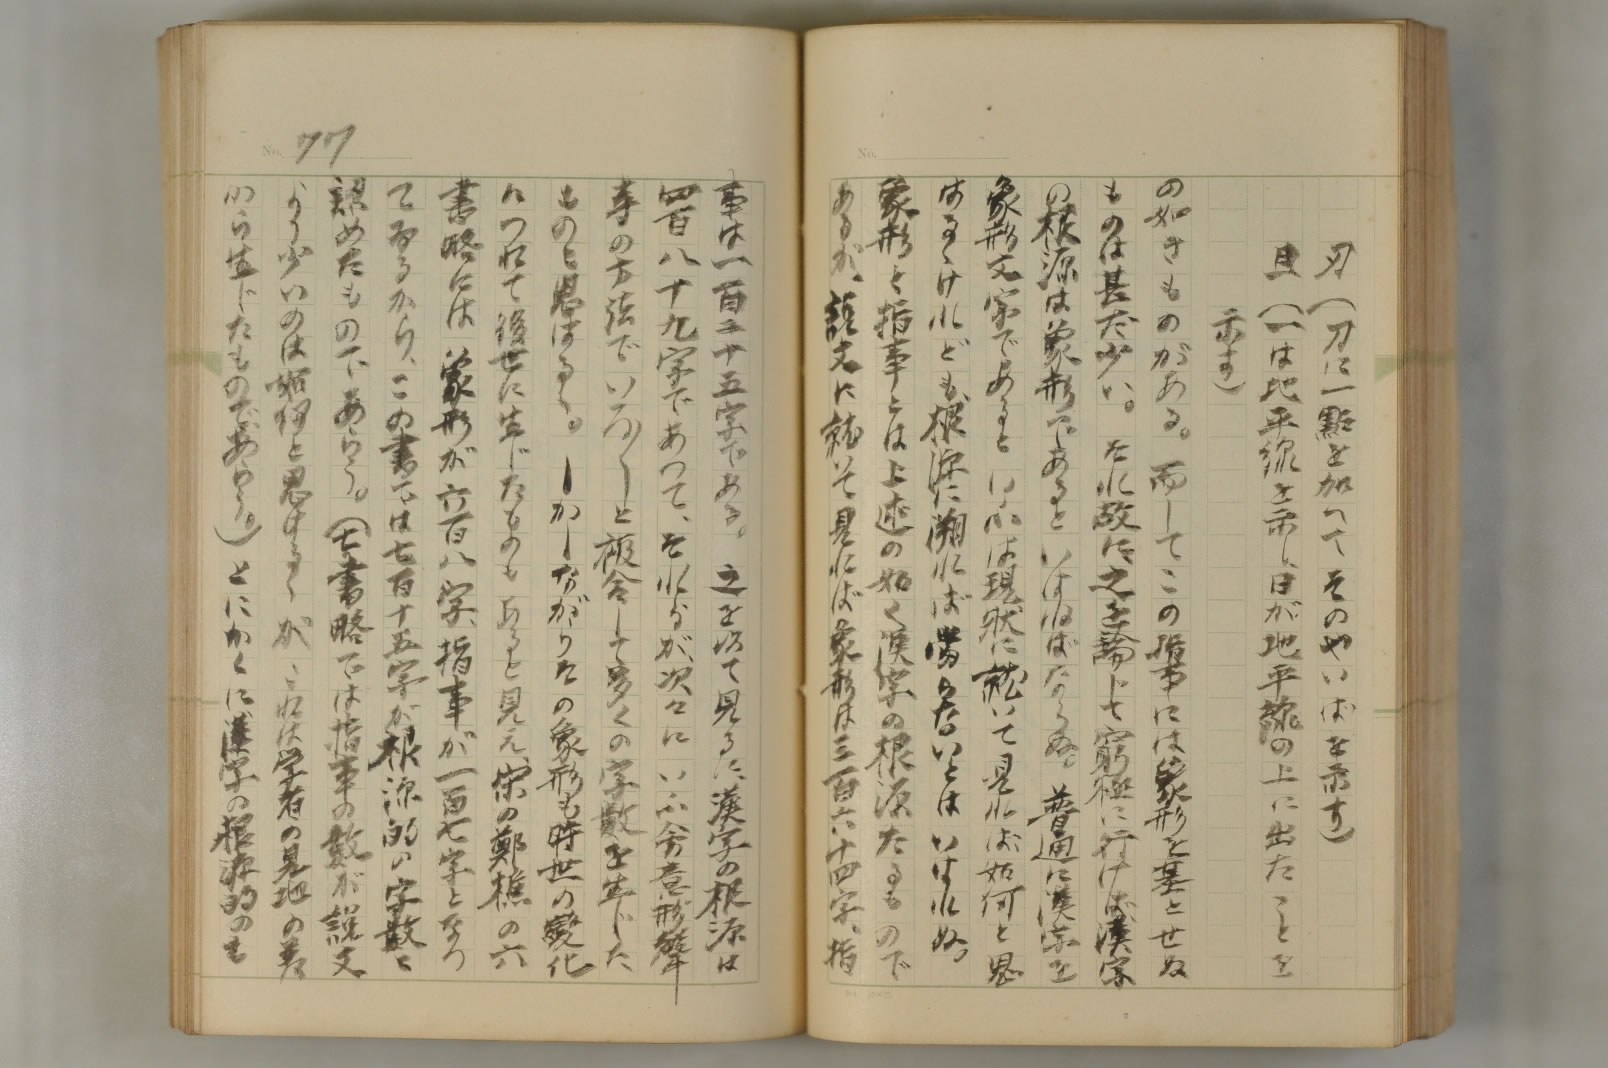 刃(刀に一點を加へてそのやいばを示す)
旦(一は地平線を示し日が地平線の上に出たことを
示す)
の如きものがある。而してこの指事には象形を基とせぬ
ものは甚だ少い。それ故に之を論じて窮極に行けば漢字
の根源は象形であるといはねばならぬ。普通に漢字を
象形文字であるといふは現状に就いて見れば如何と思
はるゝけれども、根源に溯れば當らないとはいはれぬ。
象形と指事とは上述の如く漢字の根源たるものので
あるが、説文に就いて見れば象形は三百六十四字、指
No.
No. 77
事は一百二十五字である。之を以て見るに、漢字の根源は
四百八十九字であつて、それらが次々にいふ会意形聲
等の方法でいろ〳〵と複合して多くの字數を生じた
ものと思はるゝ。しかしながらその象形も時世の變化
につれて後世に生じたものもあると見え、宋の鄭樵の六
書略には象形が六百八字、指事が一百七字となつ
てゐるから、この書では七百十五字が根源的の字數と
認めたものであらう。(七書略では指事の數が説文
より少いのは如何と思はるゝが、これは学者の見地の差
から生じたものであらう。)とにかくに漢字の根源的のも